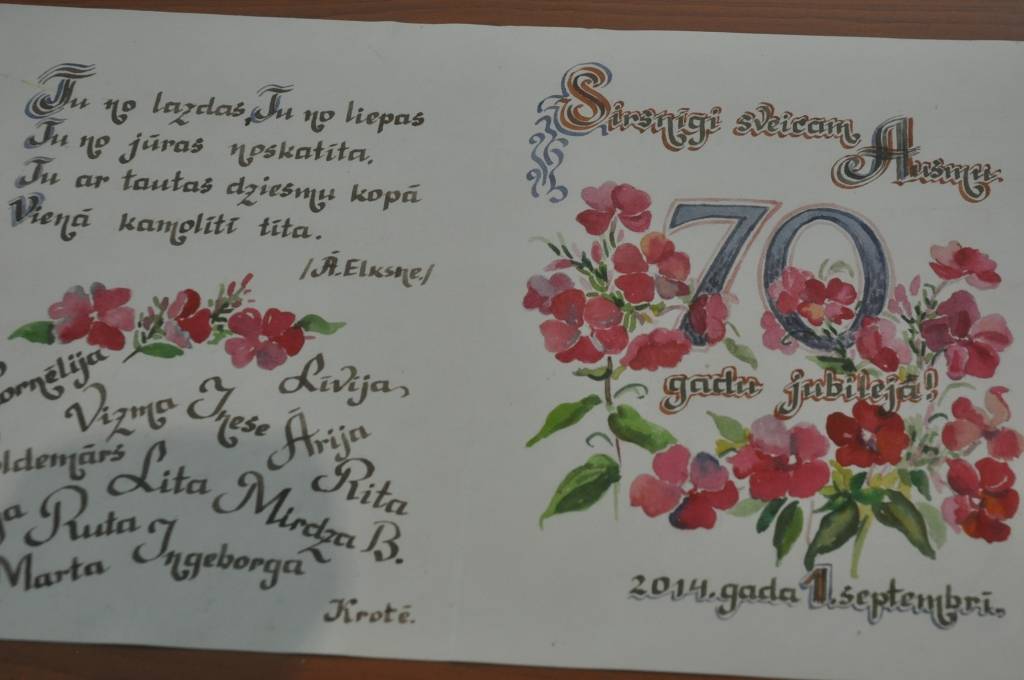 Tu no lazdas, Tu no liepas
Tu no jūras noskatīta,
Tu ar tautas dziesmu kopā
Vienā kamolītī tīta.
/Ā.Elksne/
ornēlija
Līvija,
Vizma Inese Ārija
ldemārs Lita Rita
ga Ruta Mirdza B.
Marta Ingeborga
Krotē.
Sirsnīgi sveicam
Aušmu
70
gadu jubilejā!
2014.gada 1.septembrī,